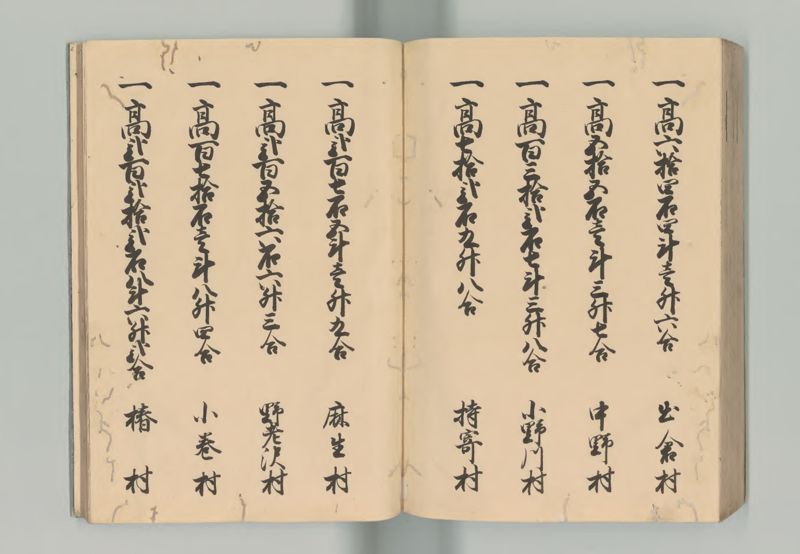 一高六拾四石四斗壱升六合 出倉村
一高五拾五石壱斗三升七合 中野村
一高百三拾弐石七斗三升八合 小野川村
一高七拾弐石九升八合 持寄村
一高弐百七石五斗壱升九合 麻生村
一高弐百五拾六石六升三合 野老沢村
一高百七拾石壱斗八升四合 小巻村
一高弐百弐拾弐石八斗六升弐合 椿村